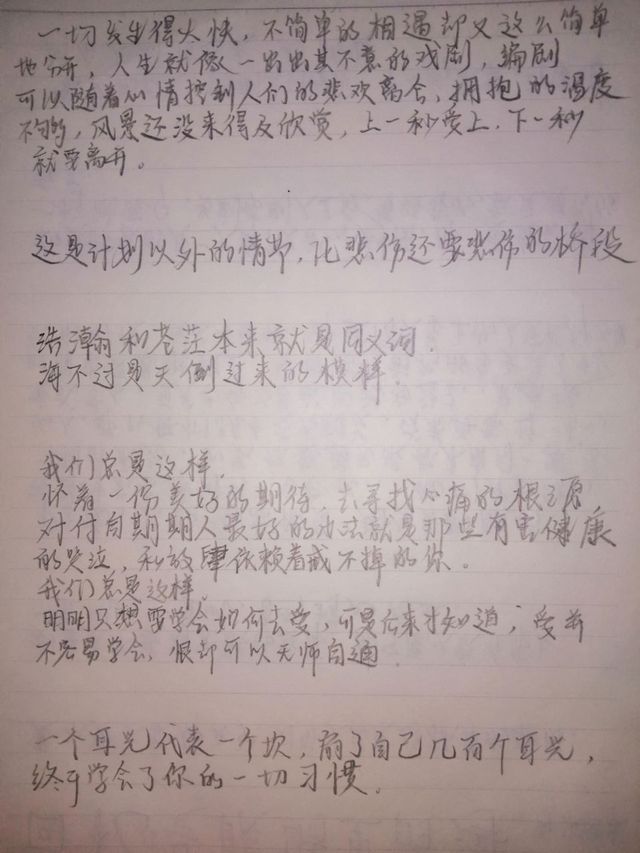 一切发生得太快，不简单的相遇却又这么简单
地分开，人生就像一出出其不意的戏剧，编剧
可以随着心情控制人们的悲欢离合，拥抱的温度
不够，风景还没来得及欣赏，上一秒爱上，下一秒
就要离开。
这是计划以外的情节，比悲伤还要悲伤的桥段
浩瀚和苍茫本来就是同义词.
海不过是天倒过来的模样.
我们总是这样.
怀着一份美好的期待，去寻找心痛的根源
对付自期期人最好的办法就是那些有害健康
的哭泣，和放肆依赖着戒不掉的你。
我们总是这样.
明明只想要学会如何去爱，可是后来才知道，爱并
不容易学会，恨却可以无师自通.
一个耳光代表一个坎，扇了自己几百个耳光，
终于学会了你的一切习惯.